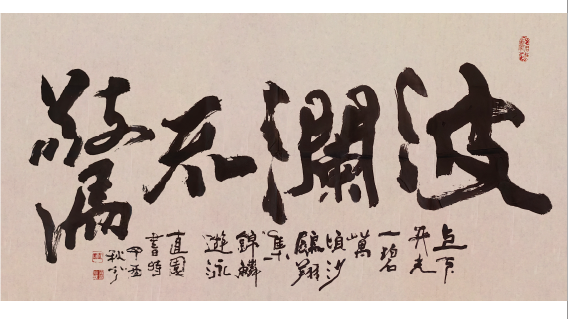 波瀾不驚
上下
天光
一碧
萬
頃沙
鷗翔
集
錦鱗
遊泳
直園
書時
甲
秋